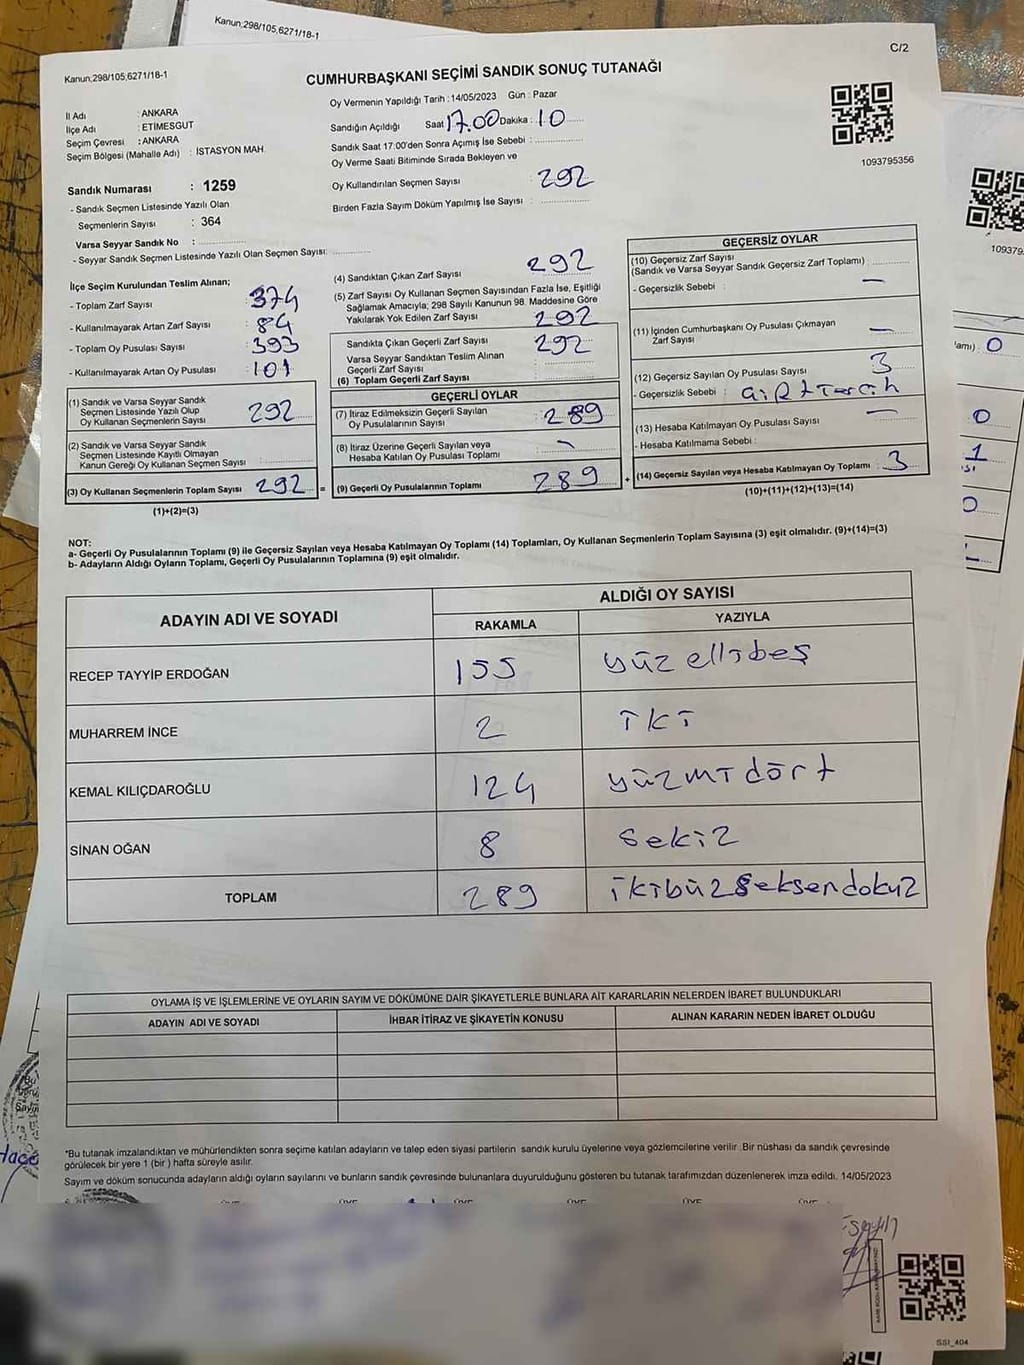 Kanun;298/105,6271/18-1
Kanun;298/105,6271/18-1
C/2
CUMHURBAŞKANI SEÇİMİ SANDIK SONUÇ TUTANAĞI
İl Adı : ANKARA
İlçe Adı : ETİMESGUT
Seçim Çevresi : ANKARA
Seçim Bölgesi (Mahalle Adı) : İSTASYON MAH.
Oy Vermenin Yapıldığı Tarih :14/05/2023 Gün : Pazar
Sandığın Açıldığı Saat 17.00 Dakika : 10
Sandık Saat 17:00'den Sonra Açımış İse Sebebi :
Oy Verme Saati Bitiminde Sırada Bekleyen ve
Oy Kullandırılan Seçmen Sayısı : 292
Birden Fazla Sayım Döküm Yapılmış İse Sayısı :
1093795356
Sandık Numarası : 1259
- Sandık Seçmen Listesinde Yazılı Olan
Seçmenlerin Sayısı : 364
Varsa Seyyar Sandık No :
- Seyyar Sandık Seçmen Listesinde Yazılı Olan Seçmen Sayısı:
İlçe Seçim Kurulundan Teslim Alınan;
- Toplam Zarf Sayısı : 374
- Kullanılmayarak Artan Zarf Sayısı : 84
- Toplam Oy Pusulası Sayısı : 393
- Kullanılmayarak Artan Oy Pusulası : 101
(1) Sandık ve Varsa Seyyar Sandık
Seçmen Listesinde Yazılı Olup
Oy Kullanan Seçmenlerin Sayısı : 292
(2) Sandık ve Varsa Seyyar Sandık
Seçmen Listesinde Kayıtlı Olmayan
Kanun Gereği Oy Kullanan Seçmen Sayısı
(3) Oy Kullanan Seçmenlerin Toplam Sayısı 292 =
(1)+(2)=(3)
(4) Sandıktan Çıkan Zarf Sayısı : 292
(5) Zarf Sayısı Oy Kullanan Seçmen Sayısından Fazla İse, Eşitliği
Sağlamak Amacıyla; 298 Sayılı Kanunun 98. Maddesine Göre
Yakılarak Yok Edilen Zarf Sayısı : 292
Sandıkta Çıkan Geçerli Zarf Sayısı : 292
Varsa Seyyar Sandıktan Teslim Alınan
Geçerli Zarf Sayısı
(6) Toplam Geçerli Zarf Sayısı
GEÇERLİ OYLAR
(7) İtiraz Edilmeksizin Geçerli Sayılan
Oy Pusulasının Sayısı : 289
(8) İtiraz Üzerine Geçerli Sayılan veya
Hesaba Katılan Oy Pusulası Toplamı : -
(9) Geçerli Oy Pusulalarının Toplamı : 289 +
GEÇERSİZ OYLAR
(10) Geçersiz Zarf Sayısı
(Sandık ve Varsa Seyyar Sandık Geçersiz Zarf Toplamı) :
- Geçersizlik Sebebi : —
(11) İçinden Cumhurbaşkanı Oy Pusulası Çıkmayan
Zarf Sayısı : —
(12) Geçersiz Sayılan Oy Pusulası Sayısı : 3
- Geçersizlik Sebebi :
(13) Hesaba Katılmayan Oy Pusulası Sayısı : —
- Hesaba Katılmama Sebebi :
(14) Geçersiz Sayılan veya Hesaba Katılmayan Oy Toplamı : 3
(10)+(11)+(12)+(13)=(14)
NOT:
a- Geçerli Oy Pusulalarının Toplamı (9) ile Geçersiz Sayılan veya Hesaba Katılmayan Oy Toplamı (14) Toplamları, Oy Kullanan Seçmenlerin Toplam Sayısına (3) eşit olmalıdır. (9)+(14)=(3)
b- Adayların Aldığı Oyların Toplamı, Geçerli Oy Pusulalarının Toplamına (9) eşit olmalıdır.
ADAYIN ADI VE SOYADI
ALDIĞI OY SAYISI
RAKAMLA YAZIYLA
RECEP TAYYİP ERDOĞAN 155 yüz ellibeş
MUHARREM İNCE 2 iki
KEMAL KILIÇDAROĞLU 124 yüzmidört
SİNAN OĞAN 8 sekiz
TOPLAM 289 ikibüzseksendokuz
OYLAMA İŞ VE İŞLEMLERİNE VE OYLARIN SAYIM VE DÖKÜMÜNE DAİR ŞİKAYETLERLE BUNLARA AİT KARARLARIN NELERDEN İBARET BULUNDUKLARI
ADAYIN ADI VE SOYADI İHBAR İTİRAZ VE ŞİKAYETİN KONUSU ALINAN KARARIN NEDEN İBARET OLDUĞU
*Bu tutanak imzalandıktan ve mühürlendikten sonra seçime katılan adayların ve talep eden siyasi partilerin sandık kurulu üyelerine veya gözlemcilerine verilir. Bir nüshası da sandık çevresinde
görülecek bir yere 1 (bir) hafta süreyle asılır.
Sayım ve döküm sonucunda adayların aldığı oyların sayılarını ve bunların sandık çevresinde bulunanlara duyurulduğunu gösteren bu tutanak tarafımızdan düzenlenerek imza edildi. 14/05/2023
ÜYE ÜYE ÜYE ÜYE ÜYE
SSI_404
109379
amı) : 0
0
1
0